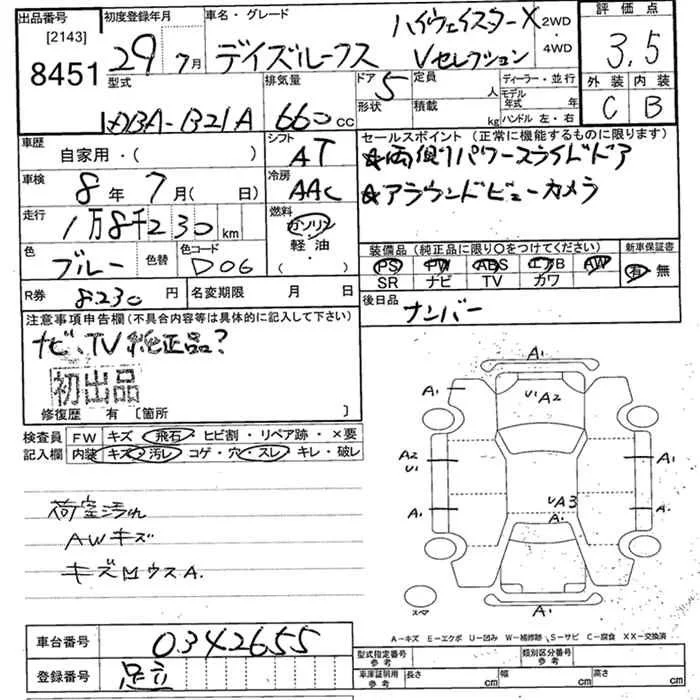 出品番号 初度登録年月 車名・グレード 評価点
[2143] 29 7月 デイズルークス ハイウェイスターX 2WD
8451 Vセレクション 4WD 3.5
型式 排気量 ドア 定員 ディーラー・並行 外装 内装
DBA-B21A 660 CC 5 人 モデル年式 年 C B
形状 積載 kg ハンドル 左・右
車歴 シフト セールスポイント（正常に機能するものに限ります）
自家用・( ) AT ☆両側パワースライドドア
車検 8年 7月( 日) 冷房 AAC ☆アラウンドビューカメラ
走行 1万8千230 km 燃料 ガソリン
軽・油
・( )
色 ブルー 色替 色コード D06
装備品（純正品に限り○をつけてください） 新車保証書
PS PW ABS エアB AW 有・無
SR ナビ TV カワ
R券 8230 円 名変期限 月 日 後日品 ナンバー
注意事項申告欄（不具合内容等は具体的に記入して下さい）
ナビ、TV純正品?
初出品
修復歴 有〔箇所 〕
検査員 FW キズ・飛石・ヒビ割・リペア跡・×要
記入欄 内装 キズ・汚レ・コゲ・穴・スレ・キレ・破レ
荷室汚れ
AWキズ
キズMウスA.
A1
A1 U1 A2
A2 U1 A1
UA3
A1 A1 A1
スマ A1
A-キズ E-エクボ U-凹み W-補修跡 S-サビ C-腐食 XX-交換済
車台番号 0342655
登録番号 足立
型式指定番号 参考 類別区分番号 参考
車庫証明用 参考 長さ cm 幅 cm 高さ cm